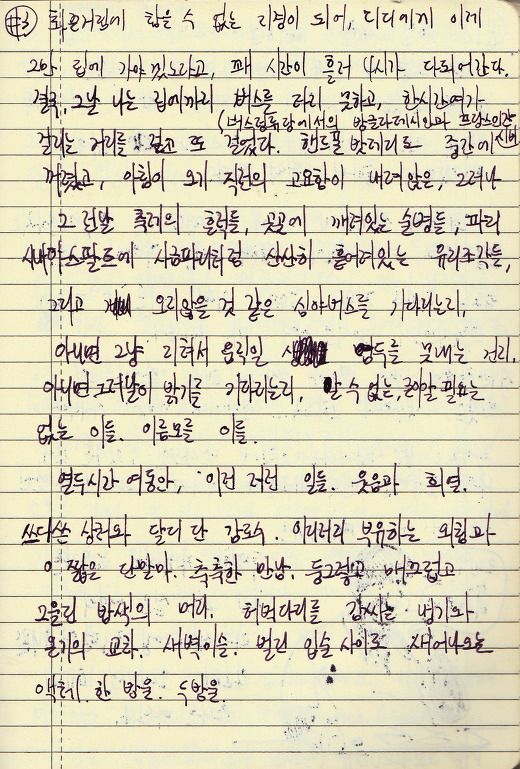 #3 화폰거린에 탑을 수 없는 리경이 되어, 디디에게 이제
그만 립에 가야겠노라고, 때 시간이 흘러 4시가 다되어간다.
결국, 그날 나는 립에까지 버스를 타리 못하고, 한시간여가
(버스정류장에서의 방글라데시인과 프랑스인간 시비)
걸리는 거리를 걸고 또 걸었다. 핸드폰 밧데리도 중간에
꺼졌고, 아침이 오기 직전의 고요함이 내려앉은, 그러나
그 런날 축제의 흔적들, 곳곳에 깨져있는 술병들, 파리
시내 아스팔트에 사금파리처럼 산산히 흩어져있는 유리조각들,
그리고 오리않을 것 같은 심야버스를 기다리는리,
아니면 그냥 리쳐서 움릭일 엄두를 못내는 건리,
아니면 그저 날이 밝기를 기다리는리, 알 수 없는, 굳이알 필요는
없는 이들. 이름모를 이들.
열두시간여동안, 이런 저런 일들. 웃음과 희열.
쓰디쓴 상처와 달디 단 감로수. 이리저리 부유하는 외침과
짧은 단말마. 축축한 만남. 둥그렇고 매끄럽고
그을린 밤색의 머리. 허벅다리를 감싸는 냉기와
온기의 교차. 새벽이슬. 벌린 입술 사이로 새어나오는
액체. 한 방울. 두방울.